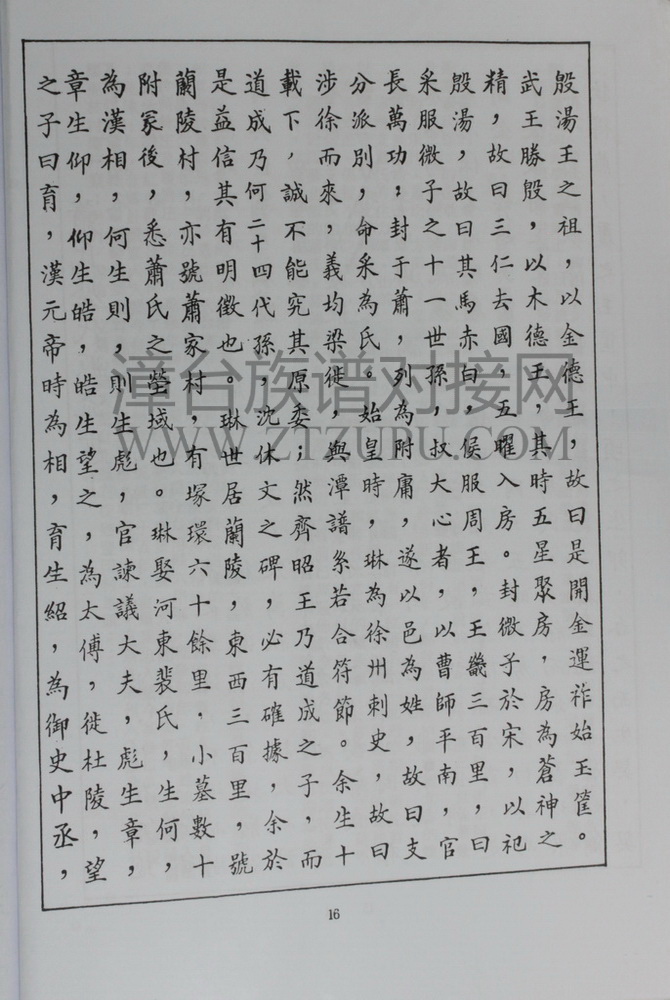 殷湯王之祖，以金德王，故曰是開金運祚始玉筐。
武王勝殷，以木德王，其時五星聚房，房為蒼神之
精，故曰三仁去國，五曜入房。封微子於宋，以祀
殷湯，故曰其馬赤白，侯服周王，王畿三百里，曰
采服微子之十一世孫，叔大心者，以曹師平南，官
長萬功，封于蕭，列為附庸，遂以邑為姓，故曰支
分派別，命采為氏。始皇時，琳為徐州刺史，故曰
涉徐而來，義均梁徙，與潭譜系若合符節。余生十
載下，誠不能究其原委；然齊昭王乃道成之子，而
道成乃何二十四代孫，沈休文之碑，必有確據，余於
是益信其有明徵也。琳世居蘭陵，東西三百里，號
蘭陵村，亦號蕭家村，有塚環六十餘里，小墓數十
附冢後，悉蕭氏之塋域也。琳娶河東裴氏，生何，
為漢相，何生則，則生彪，官諫議大夫，彪生章，
章生仰，仰生皓，皓生望之，為太傅，徙杜陵，望
之子曰育，漢元帝時為相，育生紹，為御史中丞，
16
漳台族谱对接网
WWW.ZTZUPU.COM